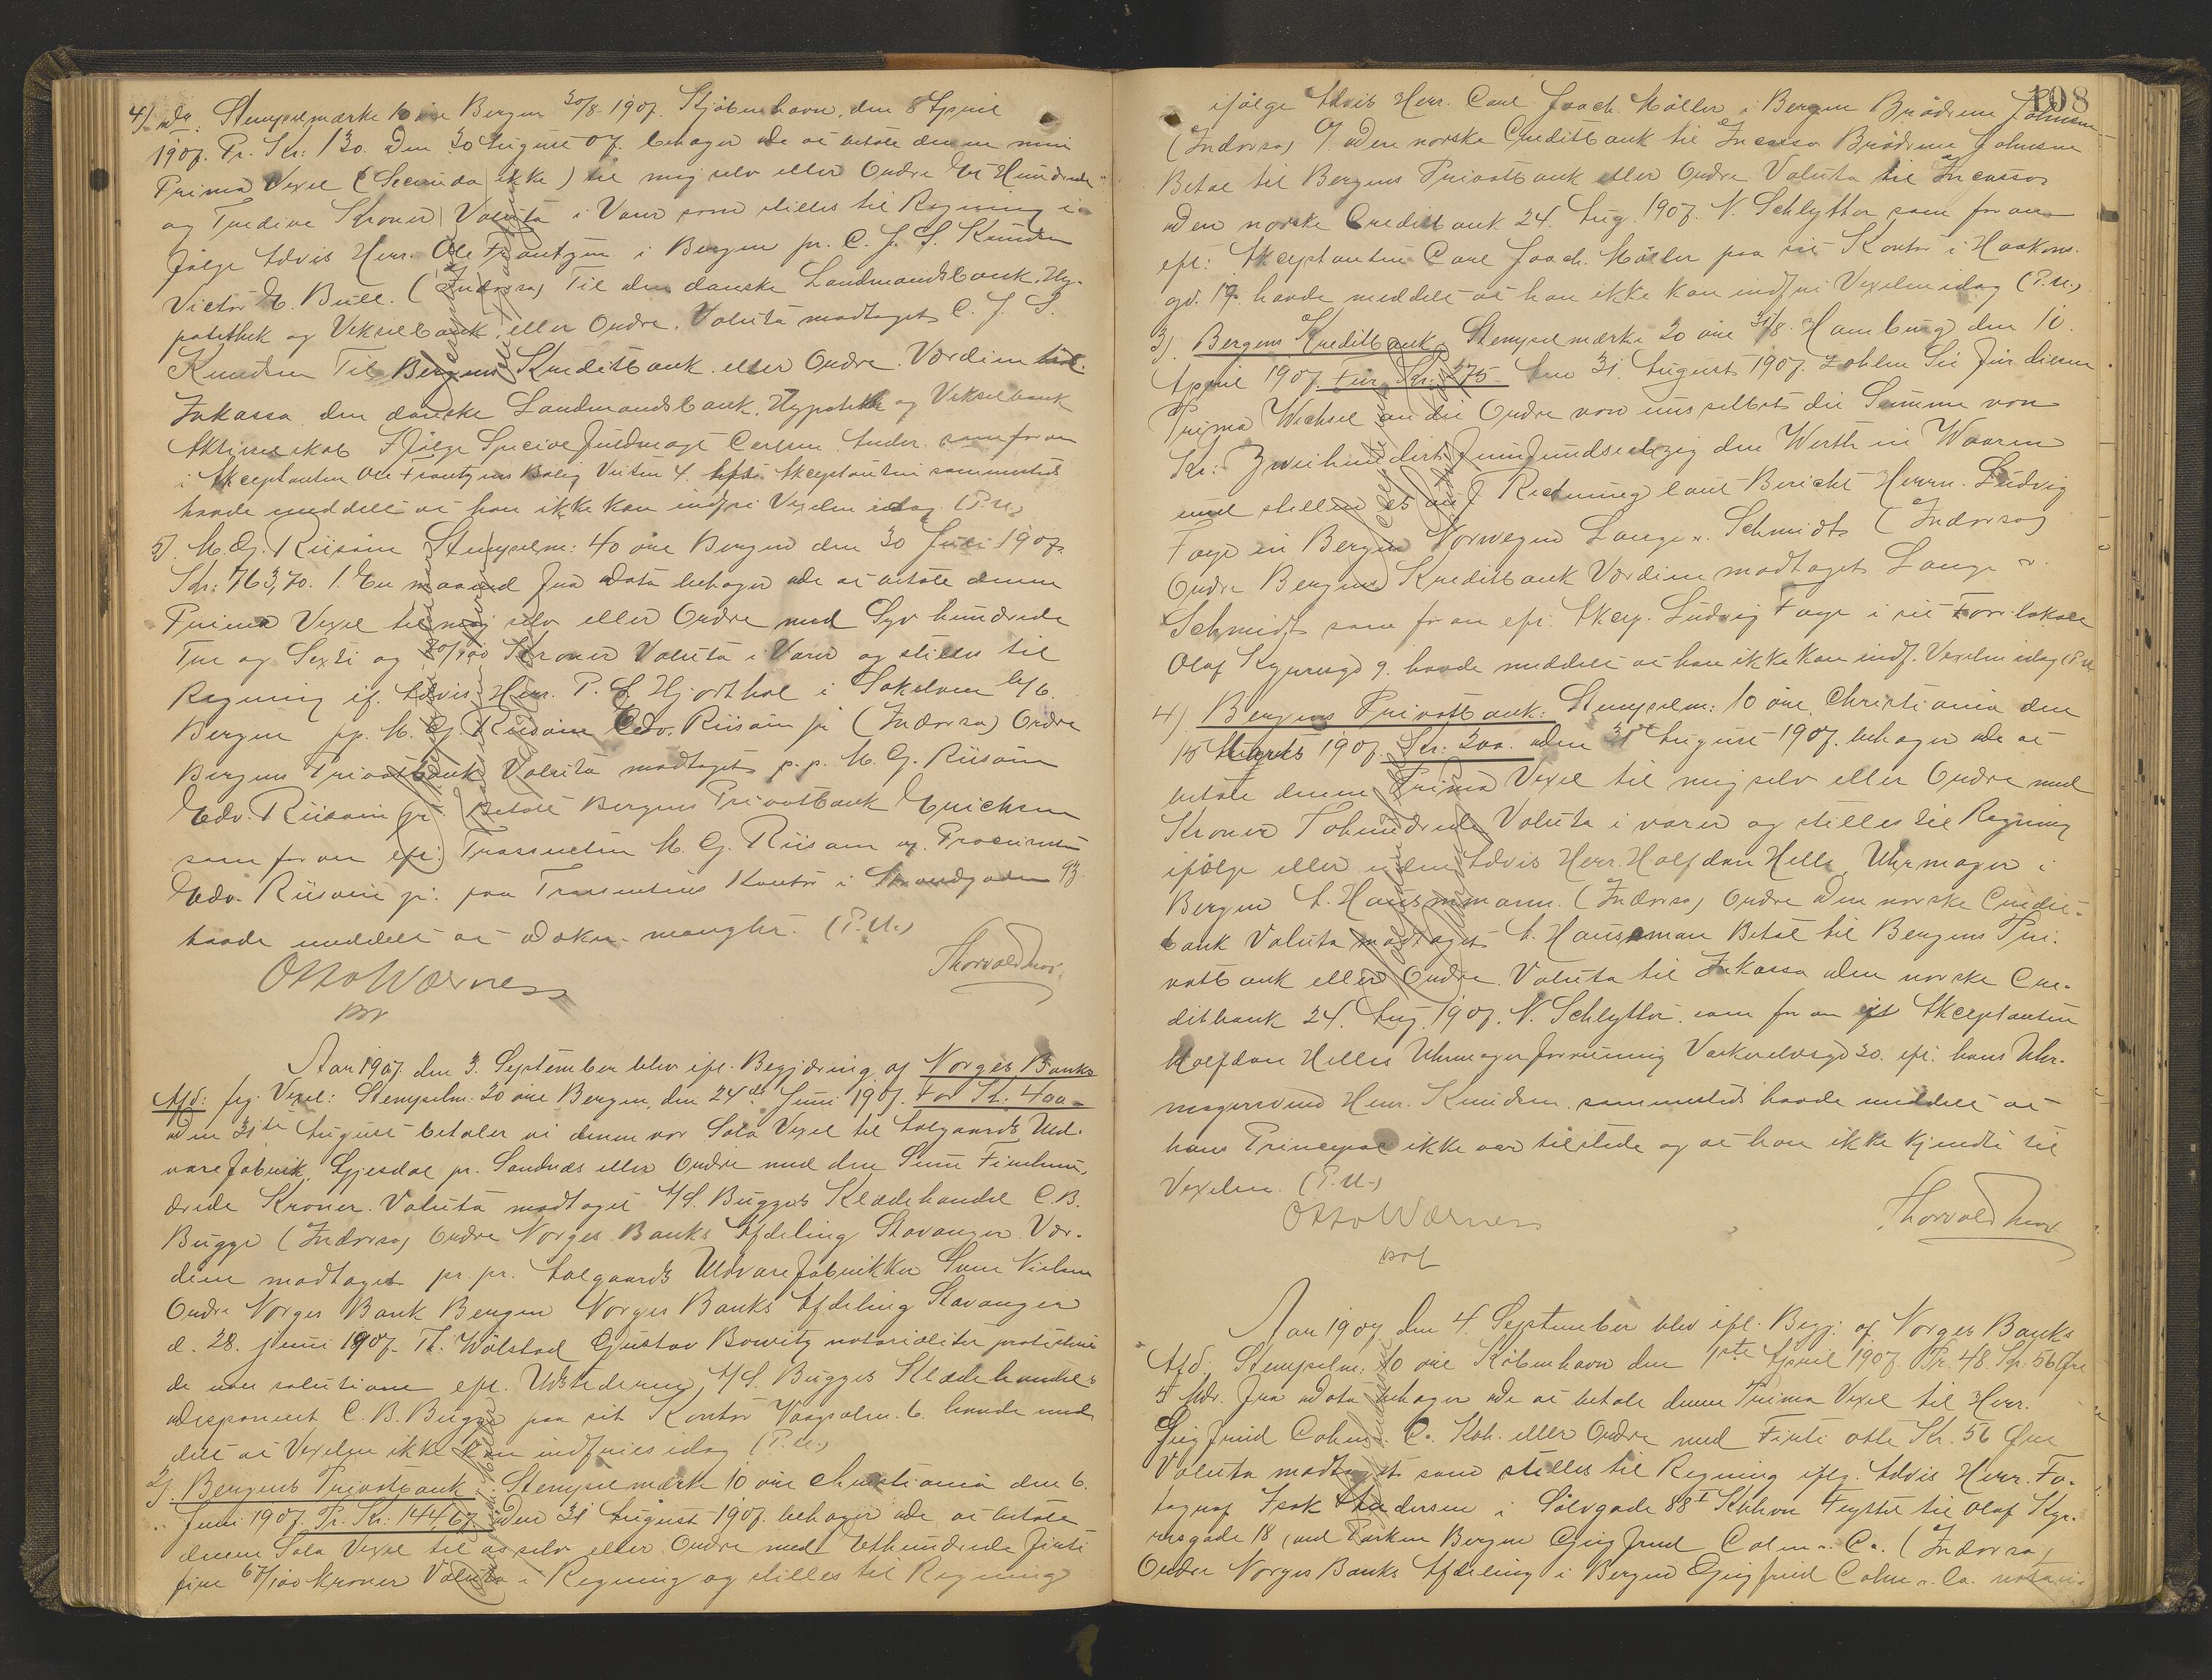 4) do. Stempelmærke 10 øre Bergen 30/8. 1907. Kjøbenhavn, den 8 April
1907. Pr. Kr: 130. Den 30 August 07. behager de at betale denne min
Prima Vexel (Secunda ikke) til mig selv eller Ordre Et Hundrede
og Tredive Kroner Valuta i Varer som stilles til Regning i-
følge Advis Herr. Ole Frantzen i Bergen pr. C. J. S. Knudsen
Victor E. Bull. (Indorso) Til den danske Landmandsbank, Hy-
pothek og Vekselbank eller Ordre. Valuta modtaget C. J. S.
Knudsen Til Bergens Kreditbank eller Ordre. Værdien til
Inkasso den danske Landmandsbank, Hypothek og Vekselbank
Aktieselskab Ifølge Speciel fuldmagt Carlsen. som foran
i Akceptanten Ole Frantzens Bolig 4. Akceptanten sammesteds
havde meddelt at han ikke kan indfri Vexelen idag (P.U.)
5). M. G. Riisøin Stempelm: 40 øre Bergen den 30 Juli 1907
Kr: 763,70. 1. En maaned fra Data behager de at betale denne
Prima Vexel til mig selv eller Ordre med Syv hundrede
Tre og Sexti og 70/100 Kroner Valuta i Varer og stilles til
Regning if. Advis Herr. P. S. Hjorthol i
Bergen pp. M. G. Riisøin Edv. Riisøin jr (Indorso) Ordre
Bergens Privatbank Valuta modtaget p. p. M. G. Riisøin
Edv. Riisøin jr. Betalt Bergens Privatbank Erichsen
som foran eft. Trassenten M. G. Riisøin og Procurist
Edv. Riisøin jr: paa Trassentens Kontor i Strandgaden 93
havde meddelt at Dækn. mangler. (P.U.)
Otto Wærness
Aar 1907 den 3. September blev ifl. Begjæring af Norges Banks
Afd: flg. Vexel: Stempelm: 20 øre Bergen, den 24de Juni 1907. For Kr: 400-
Den 31te August betaler vi denne vor Sola Vexel til Aalgaards Uld-
varefabrik, Gjesdal pr. Sandnæs eller Ordre med den Sum Firehun-
drede Kroner. Valuta modtaget A/S. Bugges Klædehandel C. B.
Bugge (Indorso) Ordre Norges Banks Afdeling Stavanger Vær-
dien modtaget pr. pr. Aalgaards Uldvarefabrikker Sven Nielsen
Ordre Norges Bank Bergen Norges Banks Afdeling Stavanger
d. 28. juni 1907. Th. Wølstad Gustav Bowitz notarialiter protestere-
de non solutione eft. Udstederen A/S. Bugges Klædehandels
disponent C. B. Bugge paa sit Kontor Vaagsalm. 6. havde med-
delt at Vexelen ikke kan indfries idag (P.U.)
2). Bergens Privatbank: Stempelmærke 10 øre Christiania den 6.
Juni 1907. Pr. Kr: 144,67. Den 31 August 1907. behager de at betale
denne Sola Vexel til os selv eller Ordre med Ethundrede firti
fire 67/100 Kroner Valuta i Regning og stilles til Regning
108
ifølge Advis Herr. Carl Joach. Møller i Bergen Brødrene Johnsen
(Indorso) Den norske Creditbank til Incasso Brødrene Johnsen
Betal til Bergens Privatbank eller Ordre Valuta til Incasso
Den norske Creditbank 24. Aug. 1907. N. Schlytter som foran
eft: Akceptanten Carl Joach. Møller paa sit Kontor i Haakons-
gd. 17. havde meddelt at han ikke kan indfri Vexelen idag (P.U.)
3). Bergens Kreditbank, Stempelmærke 20 øre 31/8. Hamburg den 10.
April 1907. Für Kr: 275- Am 31. August 1907. zahlen Sie für diesen
Prima Wechsel an die Ordre von uns selbst die Summe von
Kr: Zweihundert fünfundsiebzig den Werth in Waaren
und stellen es auf Rechnung laut Bericht Herrn. Ludvig
Faye in Bergen Norwegen Lange u. Schmidt (Indorso)
Ordre Bergens Kreditbank Værdien modtaget Lange u.
Schmidt som foran eft. Akcep. Ludvig Faye i sit Forr. lokale
Olaf Kyrresgd 9. havde meddelt at han ikke kan indf. Vexelen idag (P.U.)
4) Bergens Privatbank: Stempelm: 10 øre, Christiania den
1907. Kr: 200. den 31te August 1907. behager de at
betale denne Prima Vexel til mig selv eller Ordre med
Kroner Tohundrede Valuta i varer og stilles til Regning
ifølge eller uden Advis Herr. Halfdan Helle, Uhrmager i
Bergen A. Hausmann. (Indorso) Ordre Den norske Credit-
bank Valuta modtaget A. Hausman Betal til Bergens Pri-
vatbank eller Ordre. Valuta til Inkasso den norske Cre-
ditbank 24. Aug. 1907. N. Schlytter. som foran eft Akceptanten
Halfdan Helles Uhrmagerforretning 30. eft. hans Uhr-
magersvend Herr. Knudsen sammesteds havde meddelt at
hans Principal ikke var tilstede og at han ikke kjendte til
Vexelen. (P.U.)
Otto Wærness
Aar 1907 den 4. September blev ifl. Begj: af Norges Banks
Afd: Stempelm: 10 øre København den 1ste April 1907. Pr. 48 Kr: 56 Øre
5 Mdr. fra data behager de at betale denne Prima Vexel til Herr.
Siegfried Cohn u. Co. Kbh. eller Ordre med Firti otte Kr. 56 Øre
Valuta modtaget som stilles til Regning iflg. Advis Herr. Fo-
tograf Isak Andersen i Sølvgade 88 I Kbhvn Flyttet til Olaf Kyr-
resgade 18 ved Parken Bergen Siegfried Cohn u. Co. (Indorso)
Ordre Norges Banks Afdeling i Bergen Siegfried Cohn u. Co. notari-